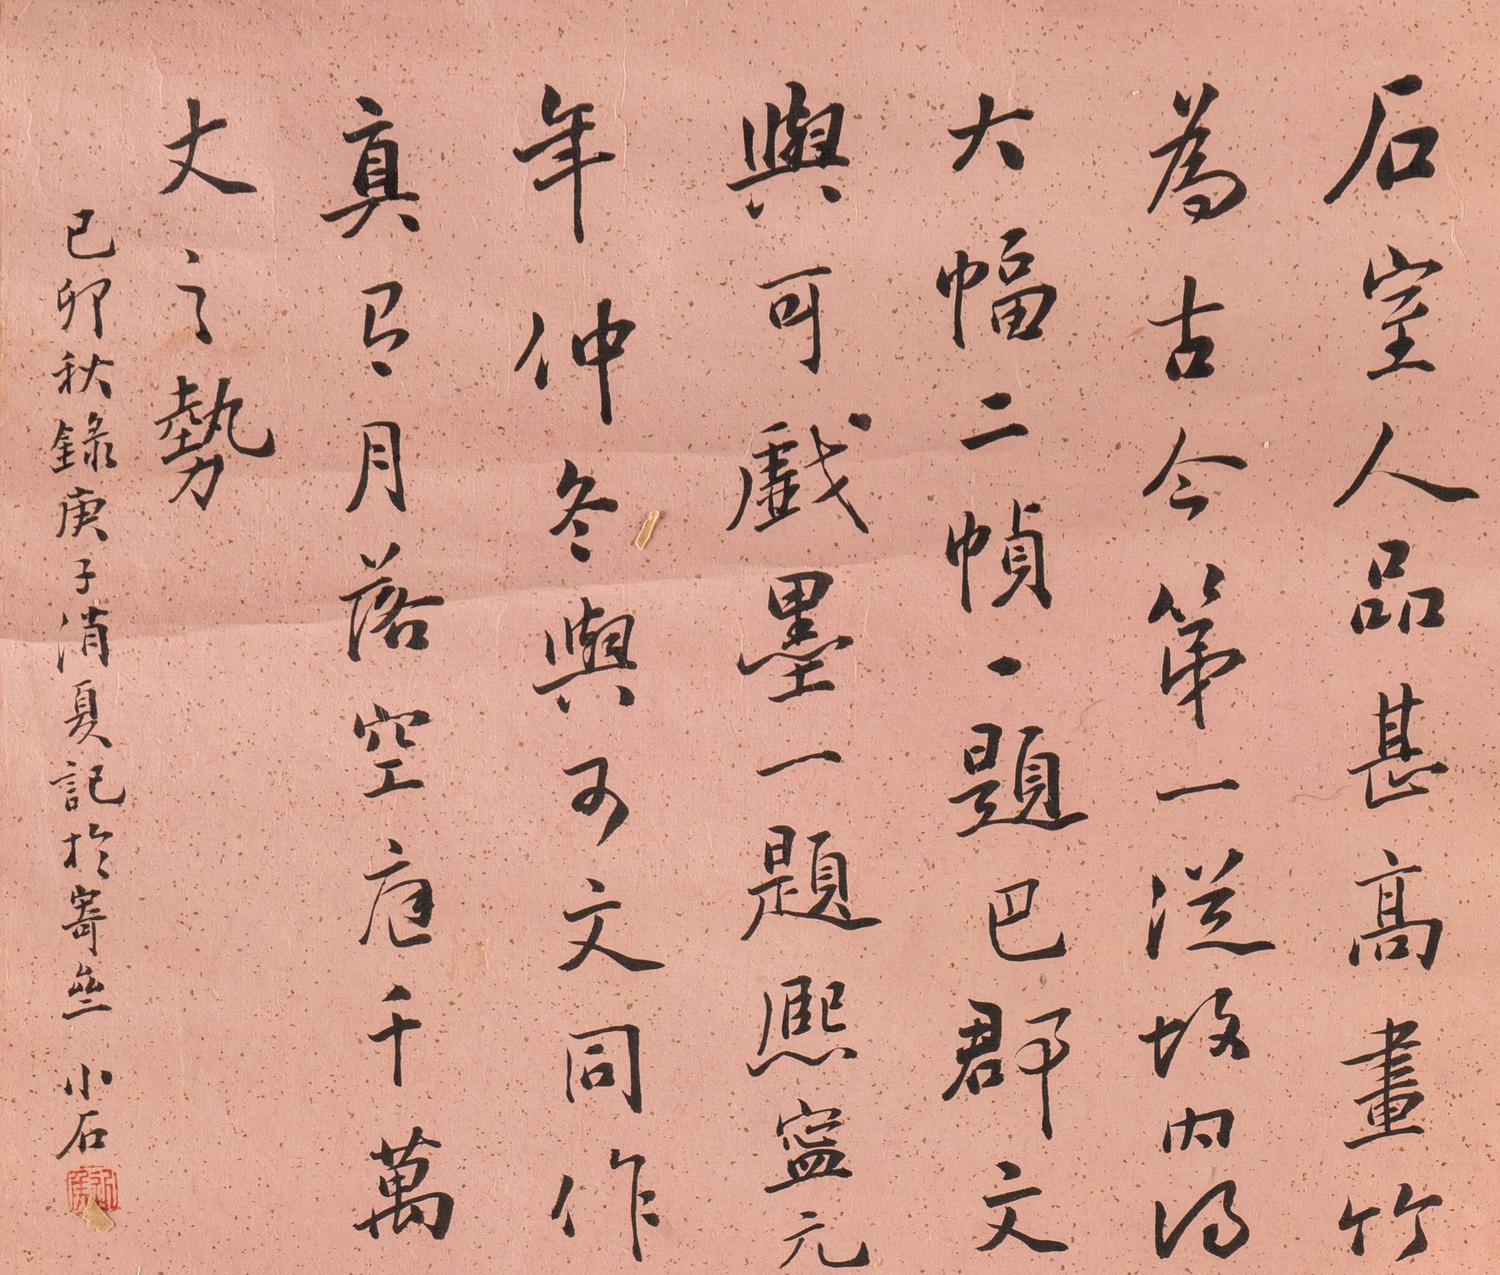 石室人品甚高畫竹
為古今第一從坡內得
大幅二幀一題巴郡文
與可戲墨一題熙寧元
年仲冬與可文同作
真有月落空庭千萬
丈之勢
己卯秋錄庚子消夏記於寄
小石